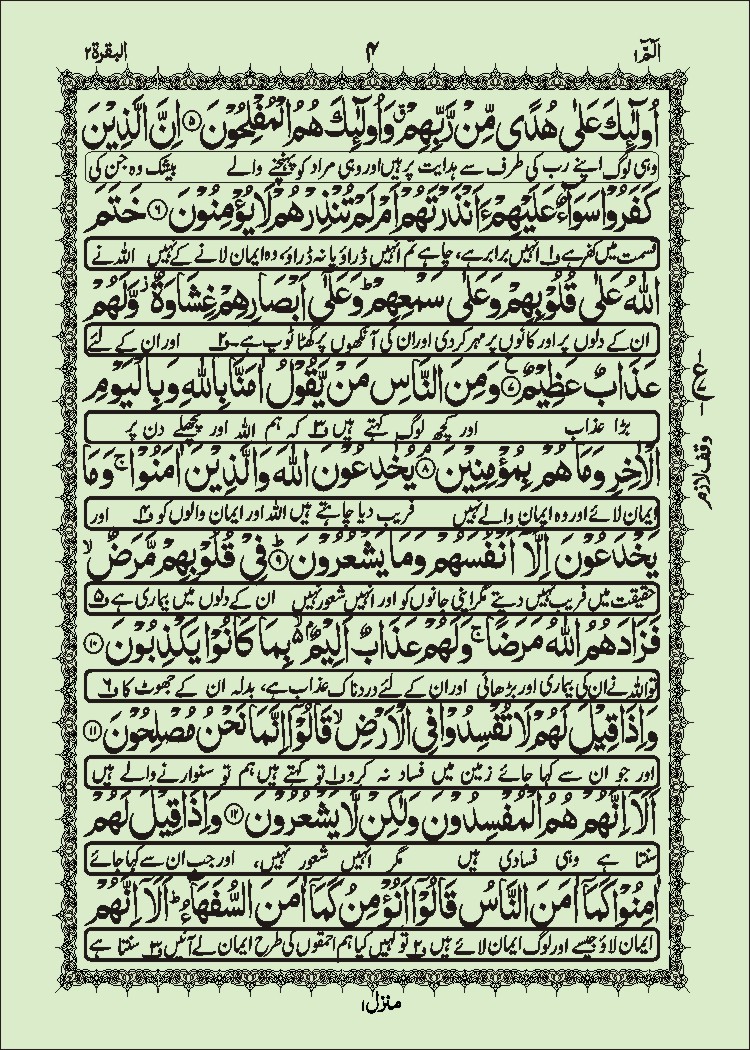 الٓمّٓ ۱ ۴ البقرة ۲
اُولٰٓئِكَ عَلٰی هُدًی مِّنْ رَّبِّهِمْ ۗ وَاُولٰٓئِكَ هُمُ الْمُفْلِحُوْنَ ۵ اِنَّ الَّذِیْنَ
وہی لوگ اپنے رب کی طرف سے ہدایت پر ہیں اور وہی مراد کو پہنچنے والے بیشک وہ جن کی
كَفَرُوْا سَوَآءٌ عَلَیْهِمْ ءَاَنْذَرْتَهُمْ اَمْ لَمْ تُنْذِرْهُمْ لَا یُؤْمِنُوْنَ ۶ خَتَمَ
قسمت میں کفر ہے ف۱ انہیں برابر ہے، چاہے تم انہیں ڈراؤ یا نہ ڈراؤ، وہ ایمان لانے کے نہیں اللہ نے
اللّٰهُ عَلٰی قُلُوْبِهِمْ وَعَلٰی سَمْعِهِمْ ؕ وَعَلٰۤی اَبْصَارِهِمْ غِشَاوَةٌ ز وَّلَهُمْ
ان کے دلوں پر اور کانوں پر مہر کردی اور ان کی آنکھوں پر گھٹا ٹوپ ہے۔ ف۲ اور ان کے لئے
عَذَابٌ عَظِیْمٌ ۷ وَمِنَ النَّاسِ مَنْ یَّقُوْلُ اٰمَنَّا بِاللّٰهِ وَبِالْیَوْمِ
ع
بڑا عذاب اور کچھ لوگ کہتے ہیں ف۳ کہ ہم اللہ اور پچھلے دن پر
الْاٰخِرِ وَمَا هُمْ بِمُؤْمِنِیْنَ ۘ ۸ یُخٰدِعُوْنَ اللّٰهَ وَالَّذِیْنَ اٰمَنُوْا ۚ وَمَا
وقف لازم
ایمان لائے اور وہ ایمان والے نہیں فریب دیا چاہتے ہیں اللہ اور ایمان والوں کو ف۴ اور
یَخْدَعُوْنَ اِلَّاۤ اَنْفُسَهُمْ وَمَا یَشْعُرُوْنَ ؕ ۹ فِیْ قُلُوْبِهِمْ مَّرَضٌ ۙ
حقیقت میں فریب نہیں دیتے مگر اپنی جانوں کو اور انہیں شعور نہیں ان کے دلوں میں بیماری ہے ف۵
فَزَادَهُمُ اللّٰهُ مَرَضًا ۚ وَلَهُمْ عَذَابٌ اَلِیْمٌۢ ۙ بِمَا كَانُوْا یَكْذِبُوْنَ ۱۰
تو اللہ نے ان کی بیماری اور بڑھائی اور ان کے لئے دردناک عذاب ہے، بدلہ ان کے جھوٹ کا ف۶
وَاِذَا قِیْلَ لَهُمْ لَا تُفْسِدُوْا فِی الْاَرْضِ ۙ قَالُوْۤا اِنَّمَا نَحْنُ مُصْلِحُوْنَ ۱۱
اور جو ان سے کہا جائے زمین میں فساد نہ کرو ف۱ تو کہتے ہیں ہم تو سنوارنے والے ہیں
اَلَاۤ اِنَّهُمْ هُمُ الْمُفْسِدُوْنَ وَلٰكِنْ لَّا یَشْعُرُوْنَ ۱۲ وَاِذَا قِیْلَ لَهُمْ
سنتا ہے وہی فسادی ہیں مگر انہیں شعور نہیں، اور جب ان سے کہا جائے
اٰمِنُوْا كَمَاۤ اٰمَنَ النَّاسُ قَالُوْۤا اَنُؤْمِنُ كَمَاۤ اٰمَنَ السُّفَهَآءُ ؕ اَلَاۤ اِنَّهُمْ
ایمان لاؤ جیسے اور لوگ ایمان لائے ہیں ف۲ تو کہیں کیا ہم احمقوں کی طرح ایمان لے آئیں ف۳ سنتا ہے
منزل ۱